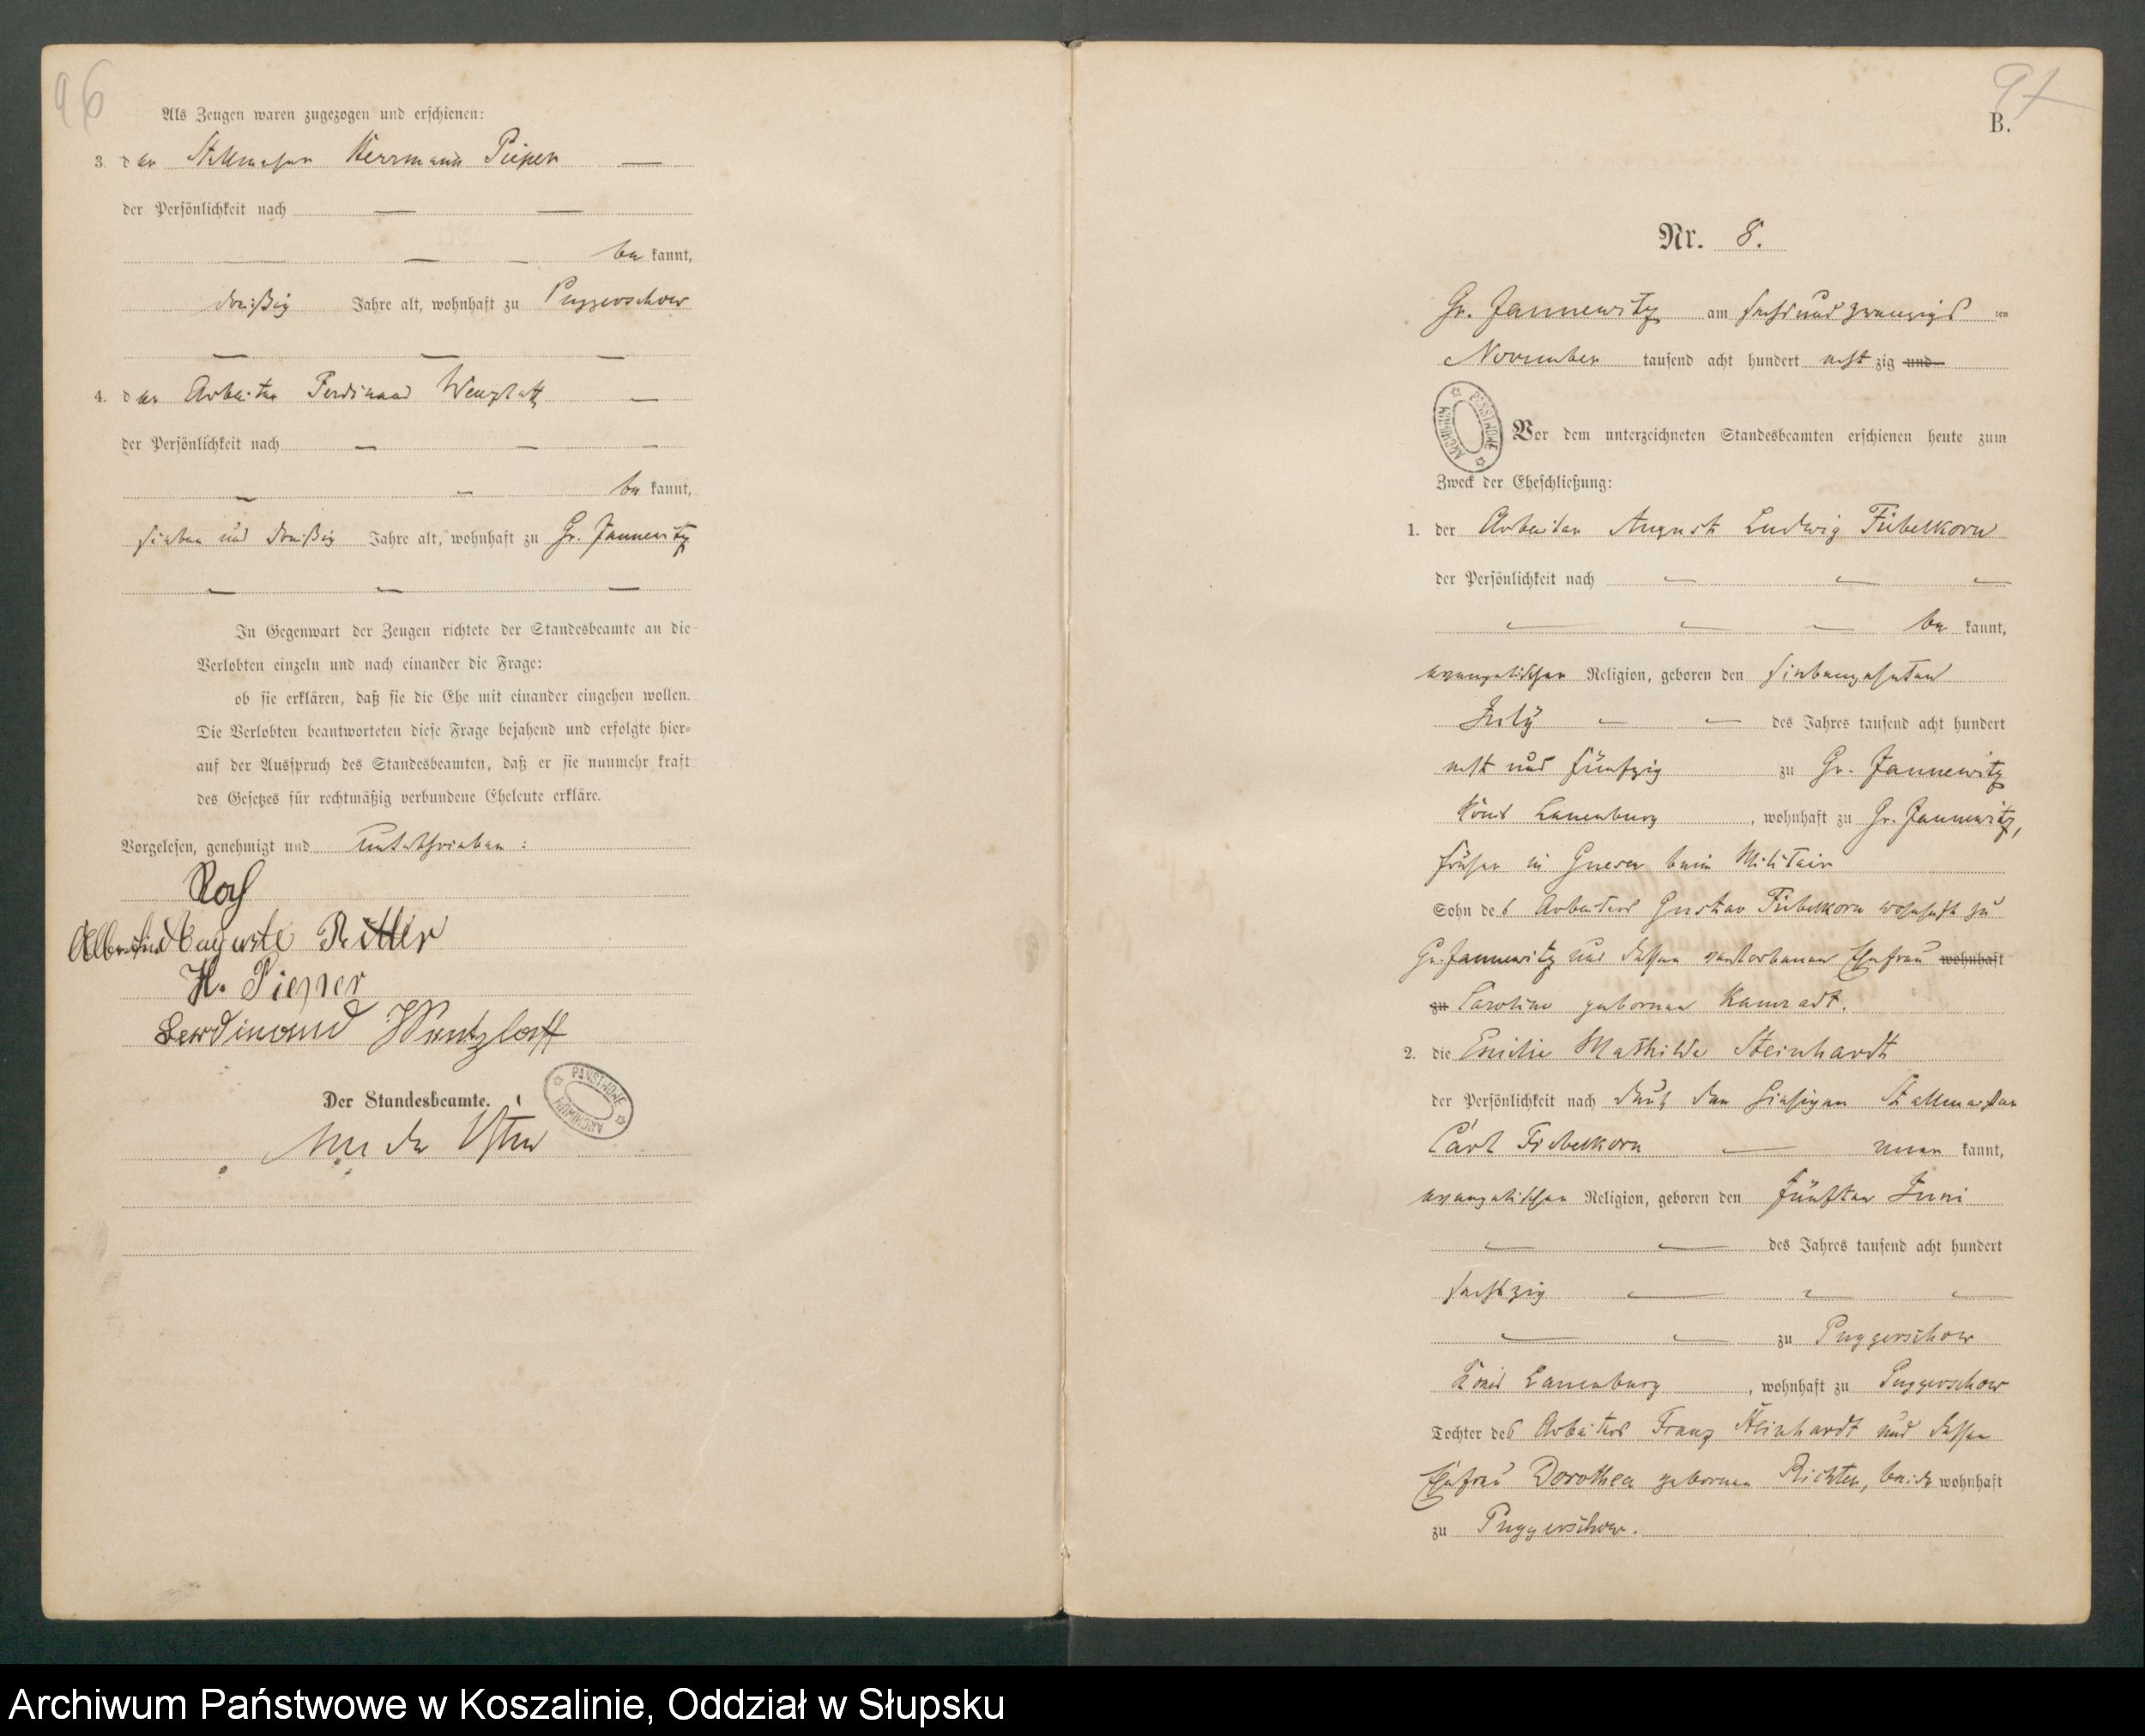 96
Als Zeugen waren zugezogen und erschienen:
3. der Stellmacher Herrmann Pieper
der Persönlichkeit nach
be kannt,
dreißig Jahre alt, wohnhaft zu Puggerschow
4. der Arbeiter Ferdinand Wenzlaff
der Persönlichkeit nach
be kannt,
sieben und dreißig Jahre alt, wohnhaft zu Gr. Jannewitz
In Gegenwart der Zeugen richtete der Standesbeamte an die
Verlobten einzeln und nach einander die Frage:
ob sie erklären, daß sie die Ehe mit einander eingehen wollen.
Die Verlobten beantworteten diese Frage bejahend und erfolgte hier-
auf der Ausspruch des Standesbeamten, daß er sie nunmehr kraft
des Gesetzes für rechtmäßig verbundene Eheleute erkläre.
Vorgelesen, genehmigt und unterschrieben:
Auguste Ritter
H. Pieper
Ferdinand Wentzlaff
Der Standesbeamte.
PAŃSTWOWE ARCHIWUM
97
B.
Nr. 8.
Gr. Jannewitz am sechs und zwanzigs ten
November tausend acht hundert acht zig und
PAŃSTWOWE ARCHIWUM
Vor dem unterzeichneten Standesbeamten erschienen heute zum
Zweck der Eheschließung:
1. der Arbeiter August Ludwig Fiebelkorn
der Persönlichkeit nach
be kannt,
evangelischer Religion, geboren den siebenzehnten
July des Jahres tausend acht hundert
acht und fünfzig zu Gr. Jannewitz
Kreis Lauenburg, wohnhaft zu Gr. Jannewitz,
früher in Gnesen beim Militair
Sohn des Arbeiters Gustav Fiebelkorn wohnhaft zu
Gr. Jannewitz und dessen verstorbenen Ehefrau wohnhaft
zu Caroline geborene Kamradt.
2. die Emilie Mathilde Steinhardt
der Persönlichkeit nach durch den hiesigen Stellmacher
Carl Fiebelkorn aner kannt,
evangelischer Religion, geboren den fünften Juni
des Jahres tausend acht hundert
sechszig
zu Puggerschow
Kreis Lauenburg, wohnhaft zu Puggerschow
Tochter des Arbeiters Franz Steinhardt und dessen
Ehefrau Dorothea geborene Richter, beide wohnhaft
zu Puggerschow.
Archiwum Państwowe w Koszalinie, Oddział w Słupsku